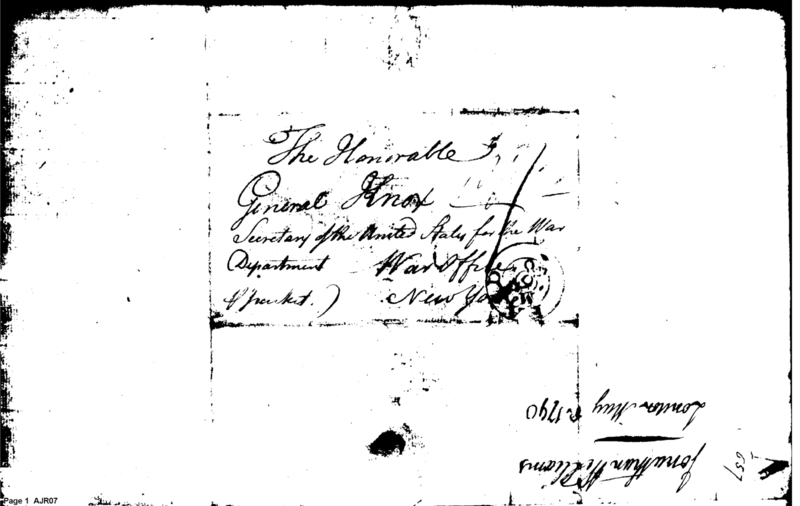 The Honorable
General Knox
Secretary of the United States for the War
Department War Office
New York
London May 1790
Jonathan Williams
Page 1 AJR07